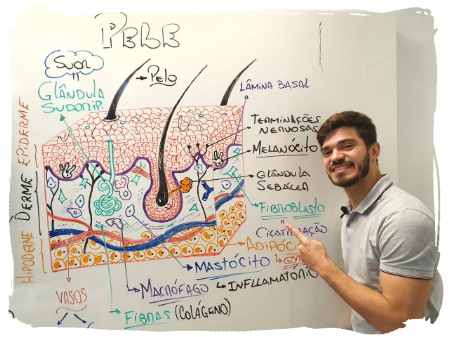 PELE
Suor
Pelo
GLÂNDULA
SUDORIP.
LÂMINA BASAL
TERMINAÇÕES
NERVOSAS
MELANÓCITO
GLÂNDULA
SEBÁCEA
FIBROBLASTO
CICATRIZAÇÃO
ADIPÓCI
MASTÓCITO
MACRÓFAGO
INFLAMATÓRI
FIBRAS (COLÁGENO)
VASOS
EPIDERME
DERME
HIPODERME